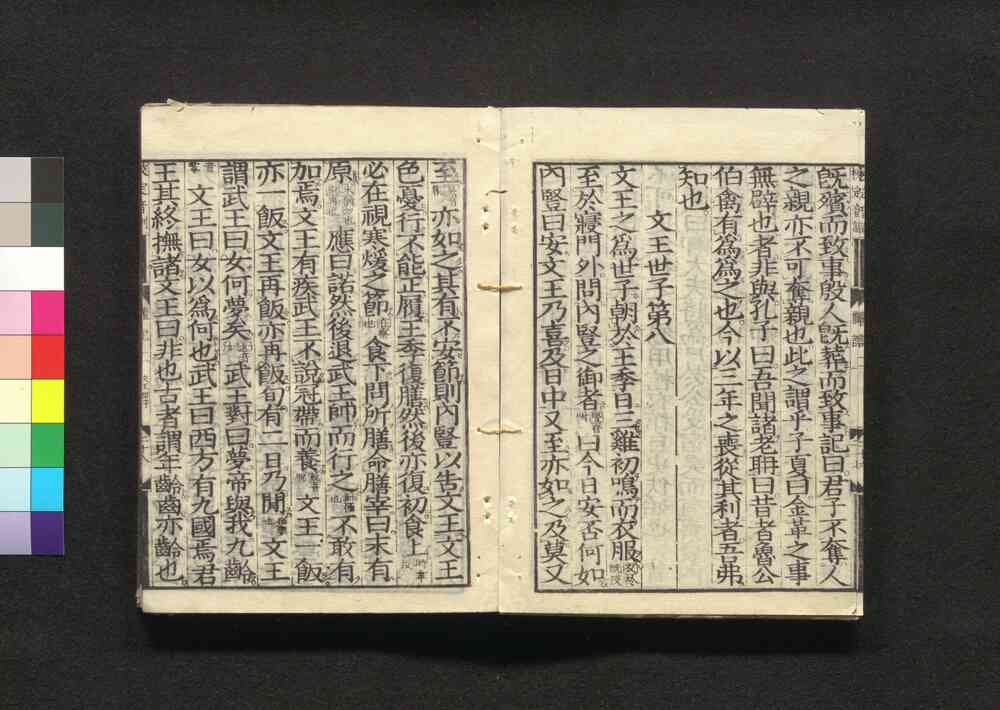 旣殯而致事殷人旣葬而致事記曰君子不奪人
之親亦不可奪親也此之謂乎子夏曰金革之事
無辟也者非與孔子曰吾聞諸老聃曰昔者魯公
伯禽有爲爲之也今以三年之喪從其利者吾弗
知也
文王世子第八
文王之爲世子朝於王季日三雞初鳴而衣服
至於寢門外問內豎之御者曰今日安否何如
內豎曰安文王乃喜及日中又至亦如之及莫又
至亦如之其有不安節則內豎以告文王文王
色憂行不能正履王季復膳然後亦復初食上
必在視寒煖之節食下問所膳命膳宰曰末有
原應曰諾然後退武王帥而行之不敢有
加焉文王有疾武王不說冠帶而養文王一飯
亦一飯文王再飯亦再飯旬有二日乃閒文王
謂武王曰女何夢矣武王對曰夢帝與我九齡
文王曰女以爲何也武王曰西方有九國焉君
王其終撫諸文王曰非也古者謂年齡齒亦齡也